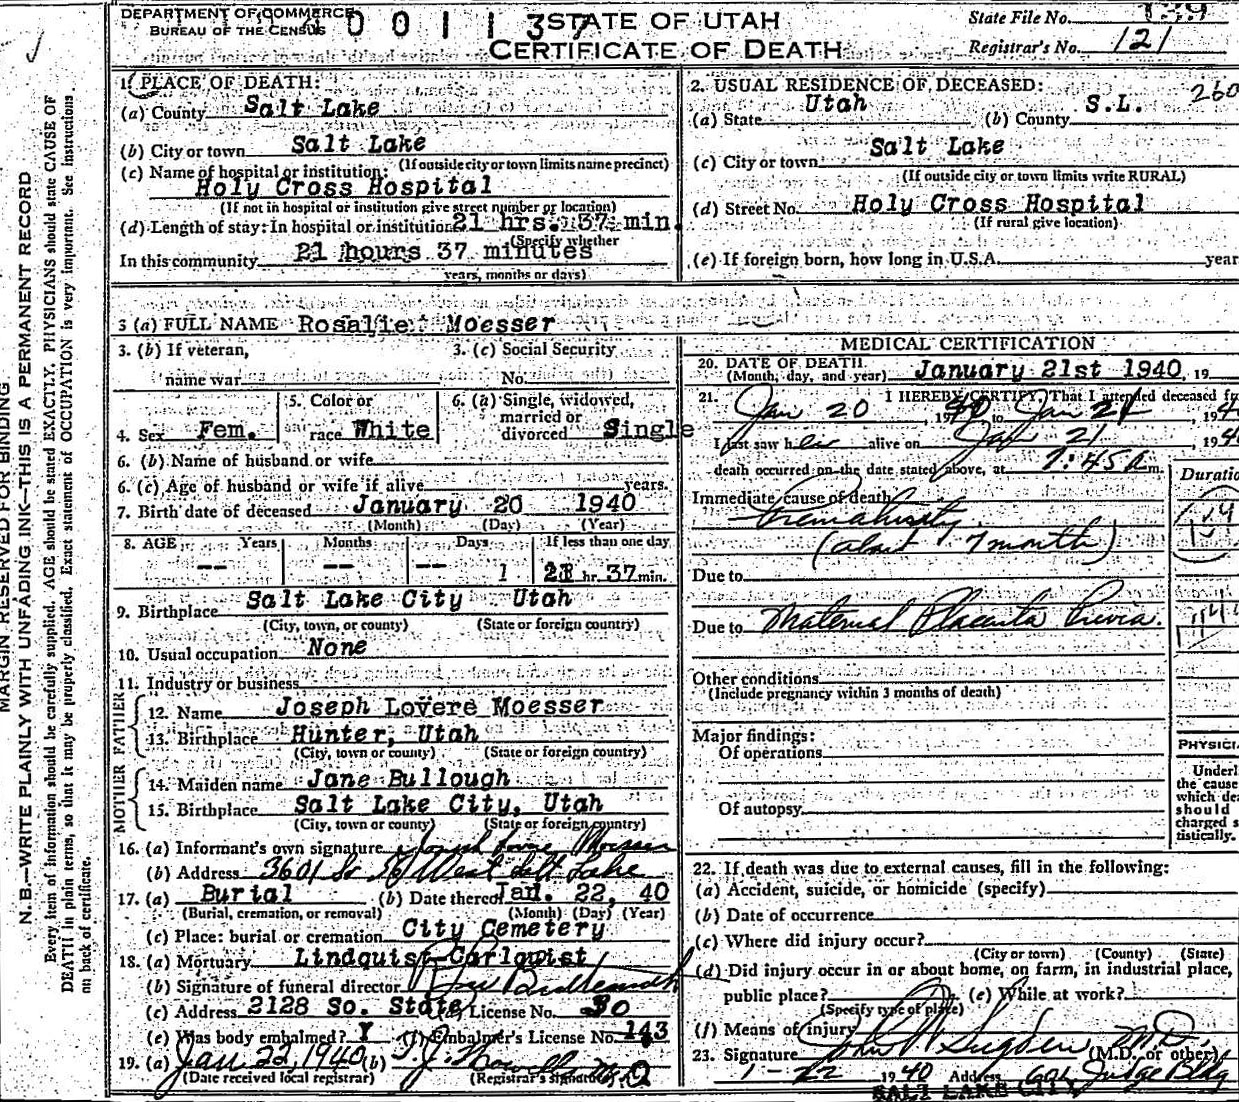 DEPARTMENT OF COMMERCE
BUREAU OF THE CENSUS
0 0 1 1 3 7
STATE OF UTAH
CERTIFICATE OF DEATH
State File No.
Registrar's No. 121
1. PLACE OF DEATH:
(a) County Salt Lake
(b) City or town Salt Lake
(If outside city or town limits name precinct)
(c) Name of hospital or institution:
Holy Cross Hospital
(If not in hospital or institution give street number or location)
(d) Length of stay: In hospital or institution 21 hrs. 37 min.
(Specify whether
In this community 21 hours 37 minutes
years, months or days)
2. USUAL RESIDENCE OF DECEASED: 260
(a) State Utah (b) County S.L.
(c) City or town Salt Lake
(If outside city or town limits write RURAL)
(d) Street No. Holy Cross Hospital
(If rural give location)
(e) If foreign born, how long in U.S.A. year
3 (a) FULL NAME Rosalie Moesser
3. (b) If veteran,
name war
3. (c) Social Security
No.
4. Sex Fem.
5. Color or
race White
6. (a) Single, widowed,
married or
divorced Single
6. (b) Name of husband or wife
6. (c) Age of husband or wife if alive years.
7. Birth date of deceased January 20 1940
(Month) (Day) (Year)
8. AGE Years Months Days If less than one day
-- -- -- 1 21 hr. 37 min.
9. Birthplace Salt Lake City Utah
(City, town, or county) (State or foreign country)
10. Usual occupation None
11. Industry or business
FATHER
12. Name Joseph Lovere Moesser
13. Birthplace Hunter, Utah
(City, town or county) (State or foreign country)
MOTHER
14. Maiden name Jane Bullough
15. Birthplace Salt Lake City, Utah
(City, town or county) (State or foreign country)
16. (a) Informant's own signature Moesser
(b) Address 3601 So 56 West Salt Lake
17. (a) Burial (b) Date thereof Jan. 22, 40
(Burial, cremation, or removal) (Month) (Day) (Year)
(c) Place: burial or cremation City Cemetery
18. (a) Mortuary Lindquist Carlquist
(b) Signature of funeral director
(c) Address 2128 So. State License No. 30
(e) Was body embalmed? Y (f) Embalmer's License No. 143
19. (a) Jan 22, 1940 (b) T. J. Howells M.D
(Date received local registrar) (Registrar's signature)
MEDICAL CERTIFICATION
20. DATE OF DEATH
(Month, day, and year) January 21st 1940, 19
21. I HEREBY CERTIFY, That I attended deceased fr
Jan 20, 1940 to Jan 21, 194
I last saw her alive on Jan 21, 194
death occurred on the date stated above, at 7:45 a m.
Duratio
Immediate cause of death
Prematurity
(about 7 month)
Due to
Due to Maternal Placenta Previa.
Other conditions
(Include pregnancy within 3 months of death)
Major findings:
Of operations
Of autopsy
PHYSICI
Underl
the cause
which dea
should
charged s
tistically.
22. If death was due to external causes, fill in the following:
(a) Accident, suicide, or homicide (specify)
(b) Date of occurrence
(c) Where did injury occur?
(City or town) (County) (State)
(d) Did injury occur in or about home, on farm, in industrial place,
public place? (e) While at work?
(Specify type of place)
(f) Means of injury
23. Signature John W Sugden, M.D. (M.D. or other)
1-22 1940 Address 601 Judge Bldg
SALT LAKE CITY
MARGIN RESERVED FOR BINDING
N.B.—WRITE PLAINLY WITH UNFADING INK—THIS IS A PERMANENT RECORD
Every item of information should be carefully supplied. AGE should be stated EXACTLY. PHYSICIANS should state CAUSE OF
DEATH in plain terms, so that it may be properly classified. Exact statement of OCCUPATION is very important. See instructions
on back of certificate.